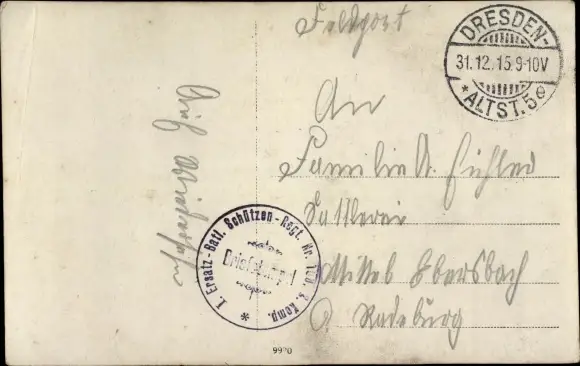 Feldpost
DRESDEN-
31.12.15.9-10V
* ALTST. 5 e
An
Familie A. Eichler
Sattlerei
Mittel Ebersbach
Radeburg
Auf Wiedersehn
* I. Ersatz-Batl. Schützen-Regt. Nr. 108, Komp.
Briefstempel